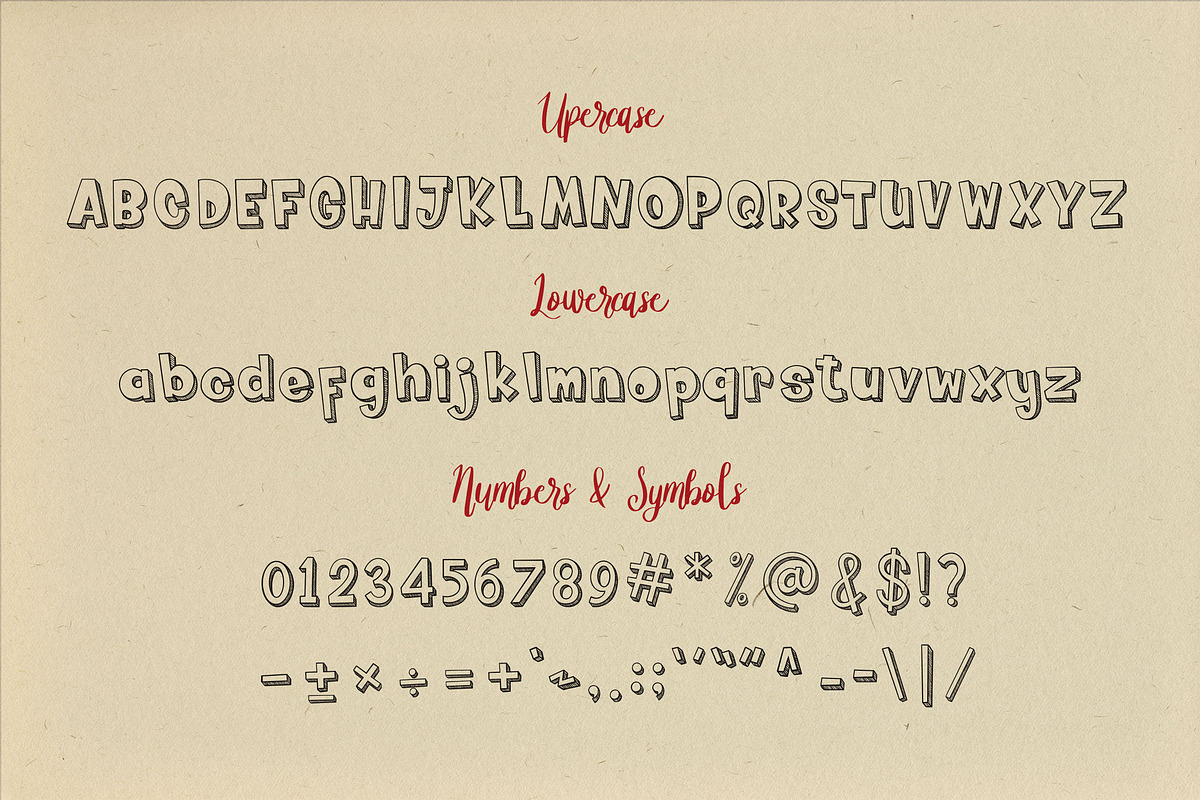 Upercase
ABCDEFGHIJKLMNOPQRSTUVWXYZ
Lowercase
abcdefghijklmnopqrstuvwxyz
Numbers & Symbols
0123456789#*%@&$!?
-±×÷=+`~,.:;''"“”^_-\|/